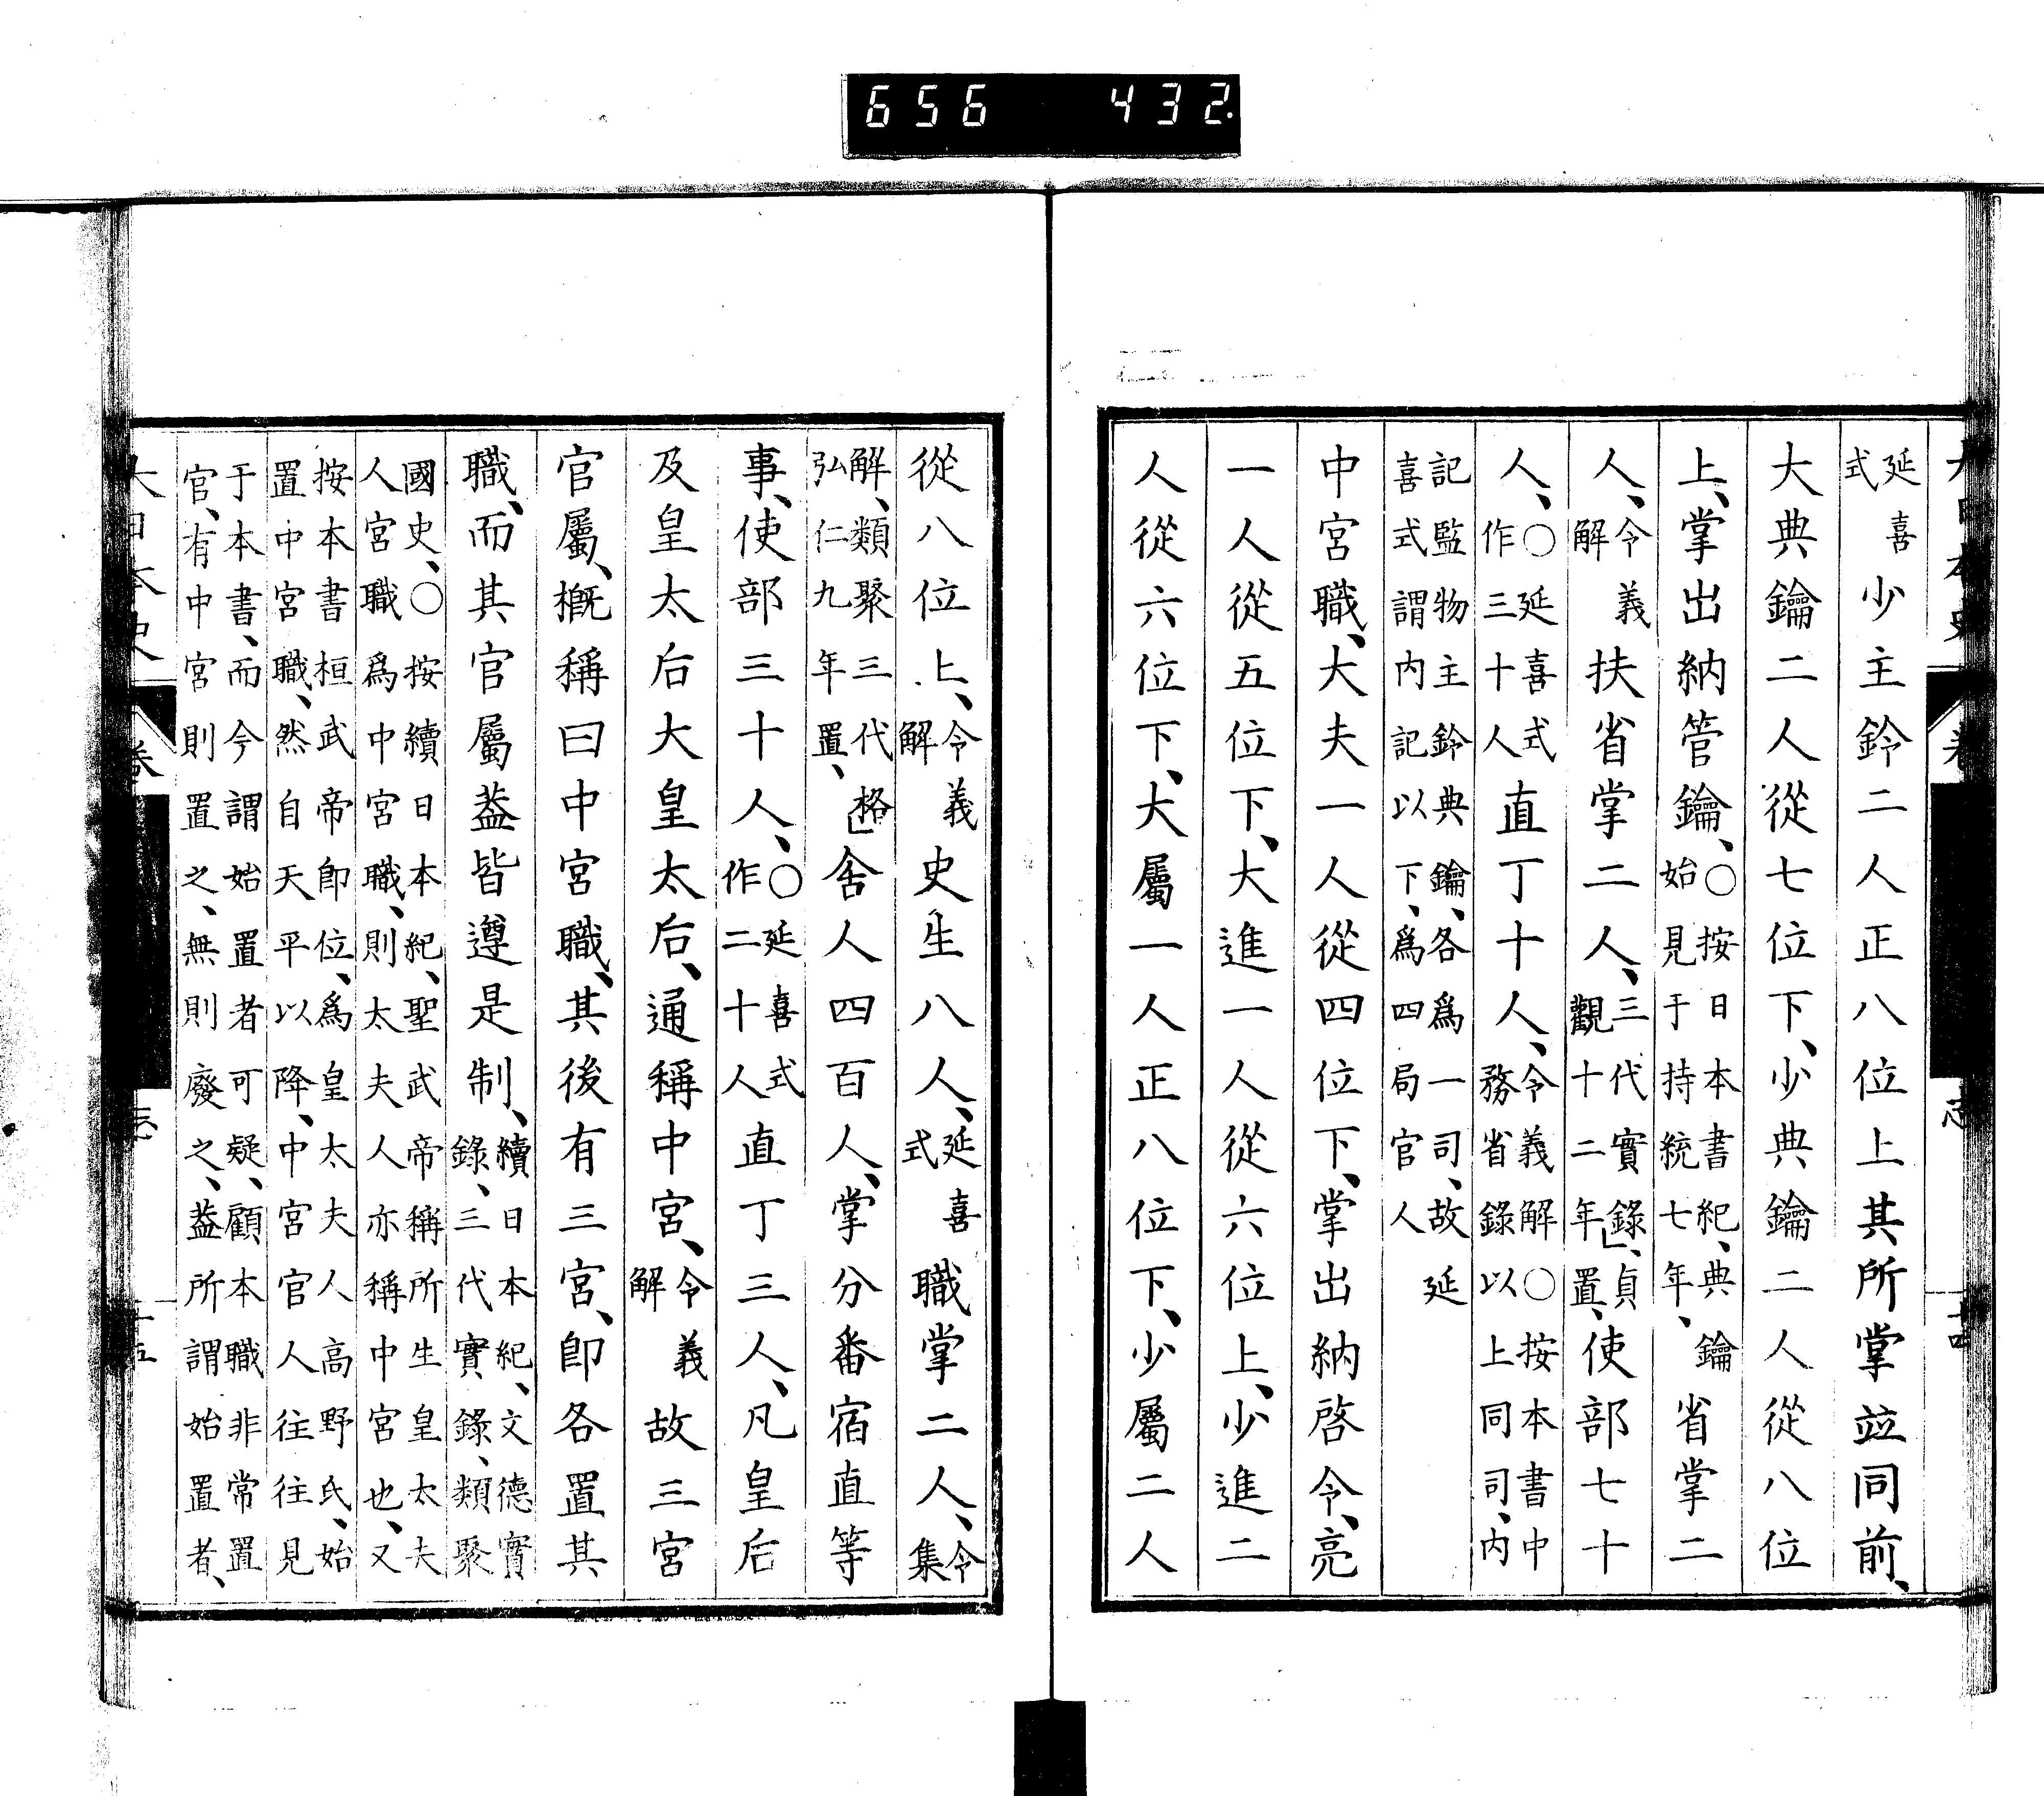 656 432.
延喜式少主鈴二人正八位上其所掌竝同前、
大典鑰二人從七位下、少典鑰二人從八位
上、掌出納管鑰、○按日本書紀、典鑰始見于持統七年、省掌二
人、令義解扶省掌二人、三代實錄、貞觀十二年置、使部七十
人、○延喜式作三十人直丁十人、令義解○按本書中務省錄以上同司、内
記監物主鈴典鑰、各爲一司、故延喜式謂内記以下、爲四局官人
中宮職、大夫一人從四位下、掌出納啓令、亮
一人從五位下、大進一人從六位上、少進二
人從六位下、大屬一人正八位下、少屬二人
從八位上、令義解史生八人、延喜式職掌二人、令集
解、類聚三代格弘仁九年置、舍人四百人、掌分番宿直等
事、使部三十人、○延喜式作二十人直丁三人、凡皇后
及皇太后大皇太后、通稱中宮、令義解故三宮
官屬、槪稱曰中宮職、其後有三宮、卽各置其
職、而其官屬葢皆遵是制、續日本紀、文德實錄、三代實錄、類聚
國史、○按續日本紀、聖武帝稱所生皇太夫人宮職爲中宮職、則太夫人亦稱中宮也、又
按本書桓武帝卽位、爲皇太夫人高野氏、始置中宮職、然自天平以降、中宮官人往往見
于本書、而今謂始置者可疑、顧本職非常置官、有中宮則置之、無則廢之、葢所謂始置者、